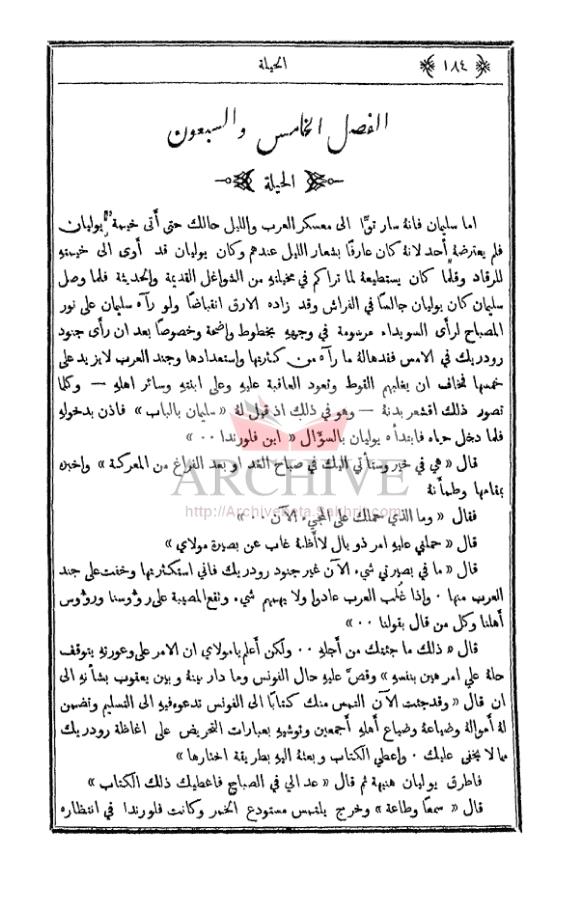 ١٨٤
الحيلة
الفصل الخامس والسبعون
الحيلة
اما سليمان فانهُ سار توًّا الى معسكر العرب والليل حالك حتى أتى خيمة يوليان
فلم يعترضهُ أحد لانهُ كان عارفًا بشعار الليل عندهم وكان يوليان قد أوى الى خيمتهِ
للرقاد وقلَّما كان يستطيعهُ لما تراكم في مخيلتهِ من الشواغل القديمة والحديثة فلما وصل
سليمان كان يوليان جالسًا في الفراش وقد زاده الارق انقباضًا ولو رآه سليمان على نور
المصباح لرأى السويداء مرسومة في وجههِ بخطوط واضحة وخصوصًا بعد ان رأى جنود
رودريك في الامس فقد هالهُ ما رآه من كثرتها واستعدادها وجند العرب لا يزيد على
خمسها فخاف ان يغلبهم القوط وتعود العاقبة عليهِ وعلى ابنتهِ وسائر اهلهِ — وكلما
تصور ذلك اقشعر بدنهُ — وهو في ذلك اذ قيل لهُ « سليمان بالباب » فاذن بدخولهِ
فلما دخل حياه فابتدأه يوليان بالسؤَال « اين فلورندا ٠٠ »
قال « هي في خير وستأتي اليك في صباح الغد او بعد الفراغ من المعركة » واخبره
بمقامها وطمأنهُ
ARCHIVE
http://Archivebeta.Sakhrit.com
فقال « وما الذي حملك على المجيء الآن ٠٠ »
قال « حملني عليهِ امر ذو بال لا أظنهُ غاب عن بصيرة مولاي »
قال « ما في بصيرتي شيء الآن غير جنود رودريك فاني استكثرتها وخفت على جند
العرب منها ٠ واذا غُلب العرب عادوا ولا يهمهم شيء وتقع المصيبة على رؤوسنا ورؤوس
أهلنا وكل من قال بقولنا ٠٠ »
قال « ذلك ما جئتك من أجلهِ ٠٠ ولكن أعلم يا مولاي ان الامر على وعورتهِ يتوقف
حلهُ على امر هين بنفسهِ » وقصَّ عليهِ حال الفونس وما دار بينهُ وبين يعقوب بشأنهِ الى
ان قال « وقد جئت الآن التمس منك كتابًا الى الفونس تدعوه فيهِ الى التسليم وتضمن
لهُ أموالهُ وضياعهُ وضياع أهلهِ أجمعين وتوشيهِ بعبارات التحريض على اغاظة رودريك
مما لا يخفى عليك ٠ وإعطني الكتاب وابعثهُ اليهِ بطريقة اختارها »
فاطرق يوليان هنيهة ثم قال « عد الي في الصباح فاعطيك ذلك الكتاب »
قال « سمعًا وطاعة » وخرج يلتمس مستودع الخمر وكانت فلورندا في انتظاره